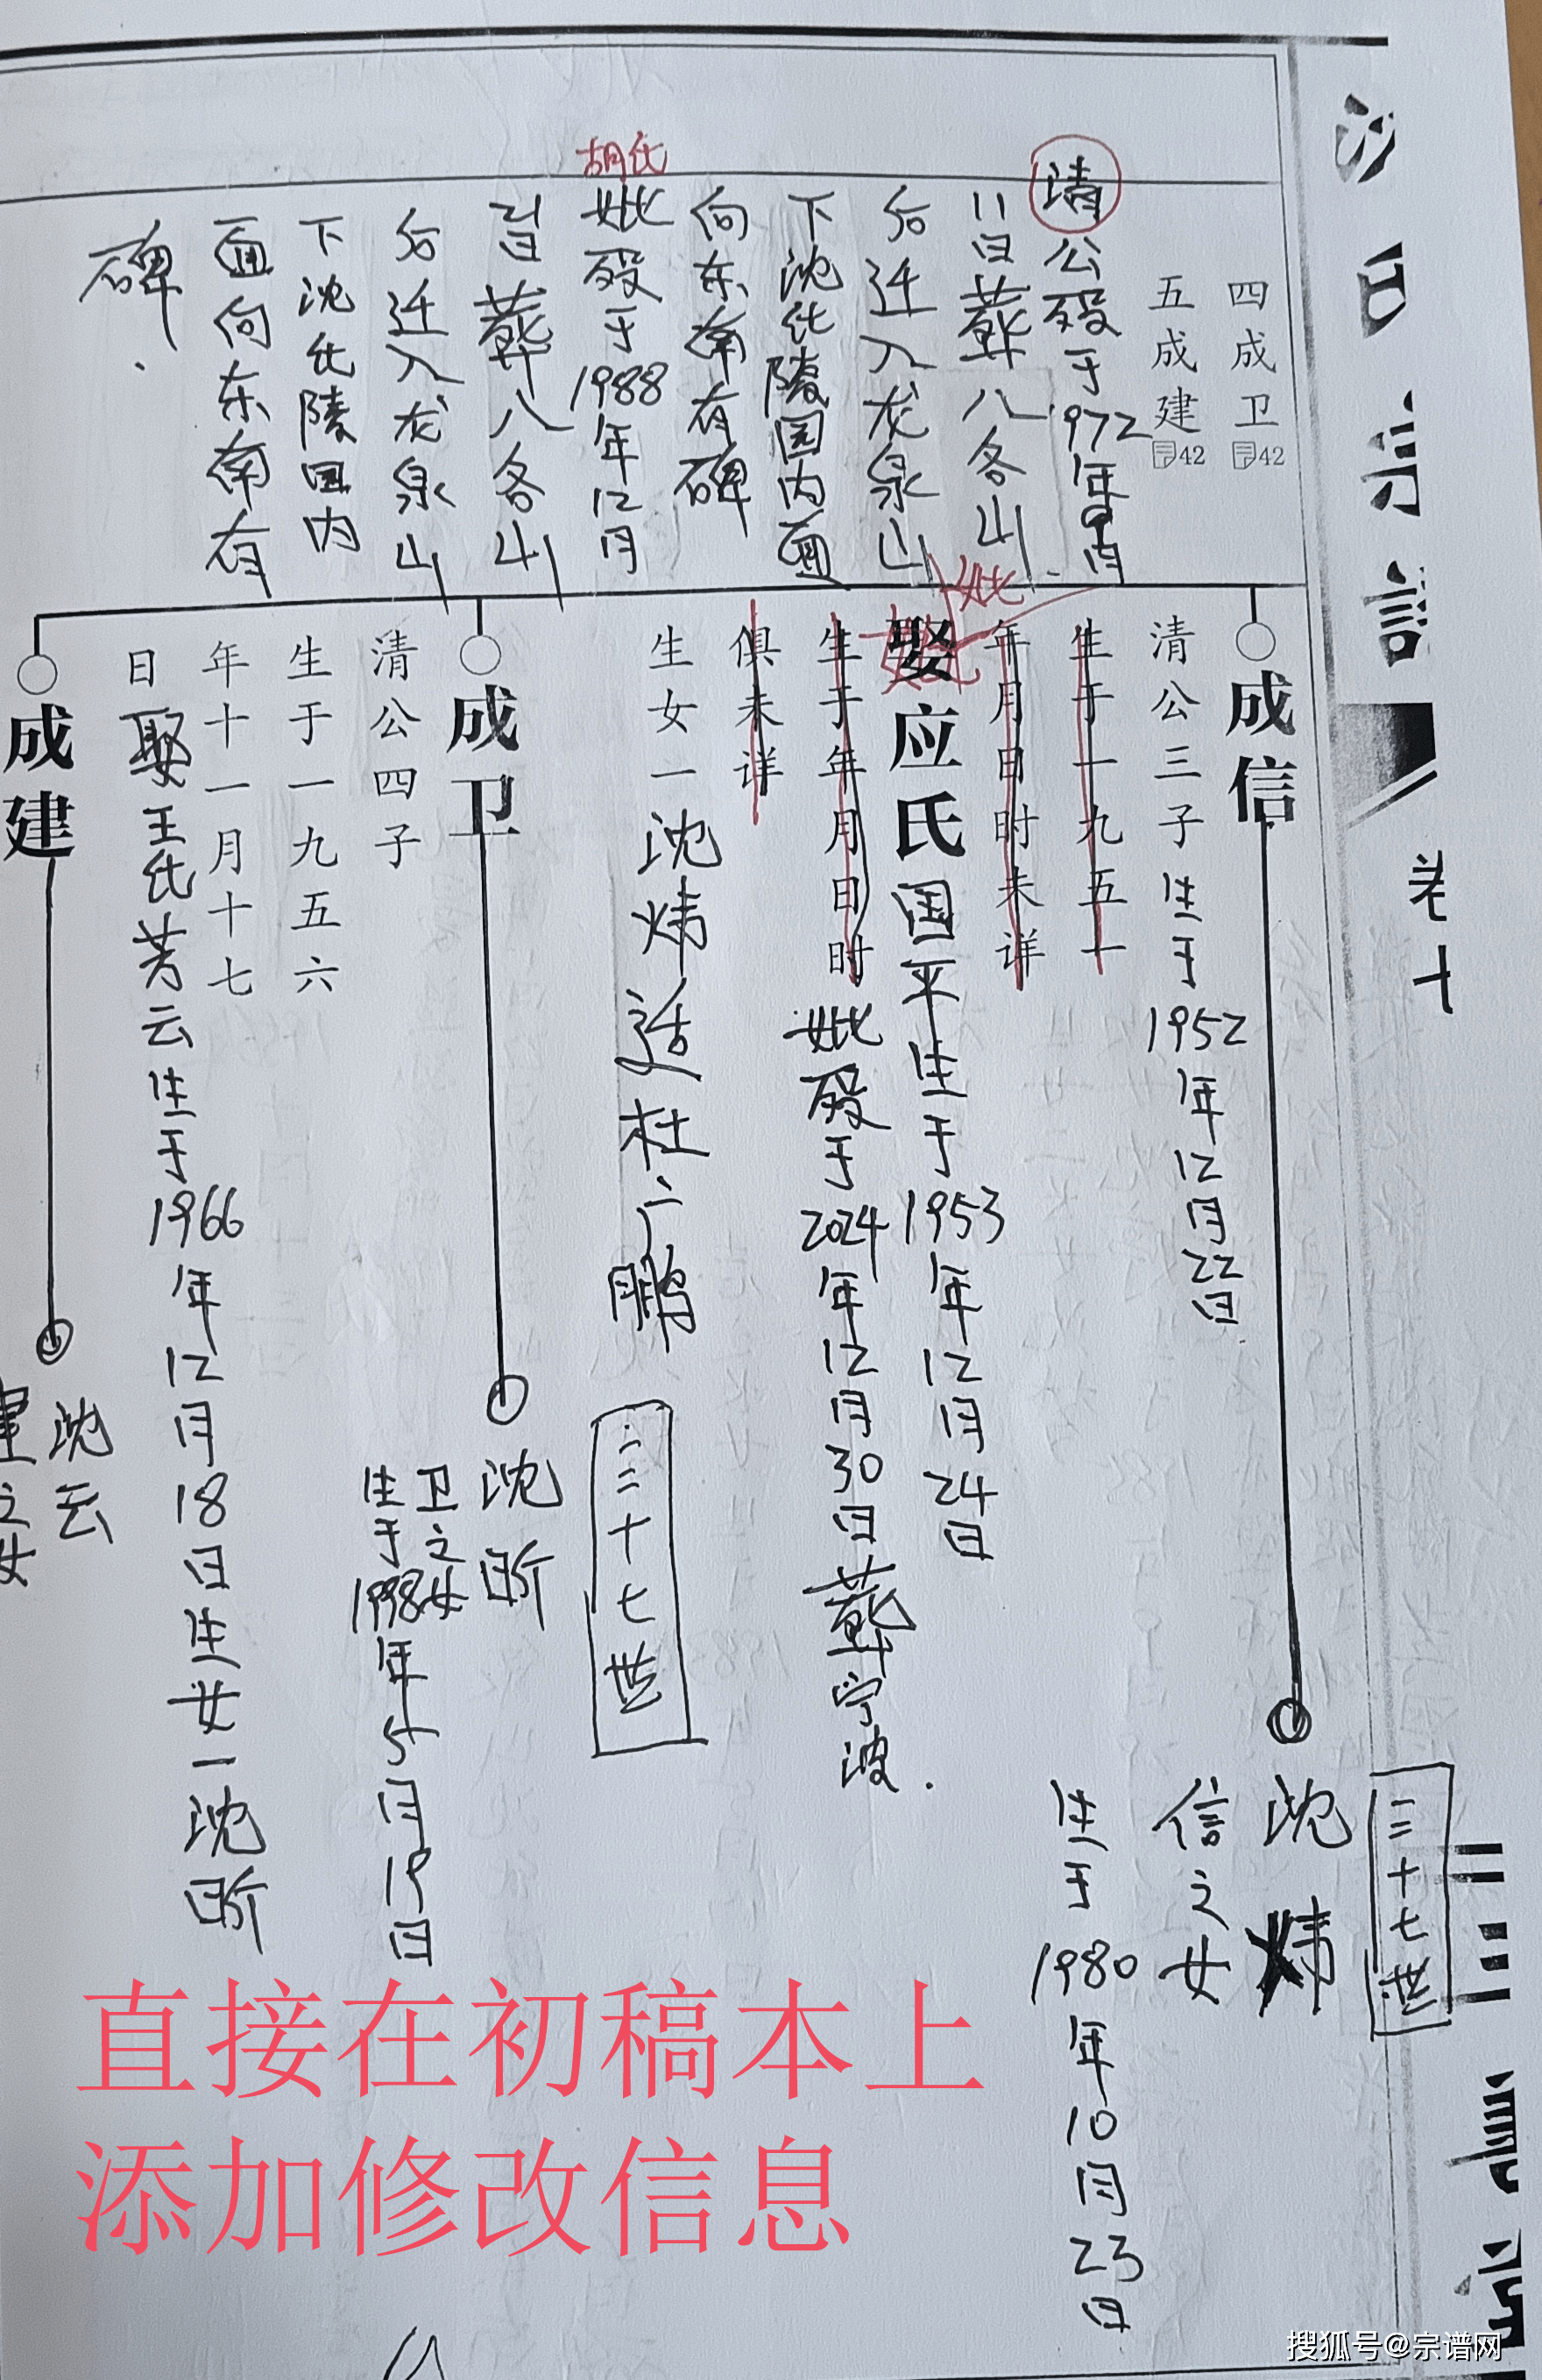 卷十
四成卫 42
五成建 42
清公殁于1972年
11日葬八各山
后迁入龙泉山
下沈氏陵园内面
向东南有碑
胡氏
妣殁于1988年12月
21日葬八各山
后迁入龙泉山
下沈氏陵园内
面向东南有
碑.
成信
清公三子生于1952年12月22日
生于一九五一
年月日时未详
妣
娶应氏国平生于1953年12月24日
生于年月日时
妣殁于2024年12月30日葬宁波.
俱未详
生女一沈炜适杜广鹏
三十七世
沈炜
信之女
生于1980年10月23日
成卫
清公四子
生于一九五六
年十一月十七
日娶王氏芳云生于1966年12月18日生女一沈昕
三十七世
沈昕
卫之女
生于1998年5月19日
成建
沈云
建之女
直接在初稿本上
添加修改信息
搜狐号@宗谱网